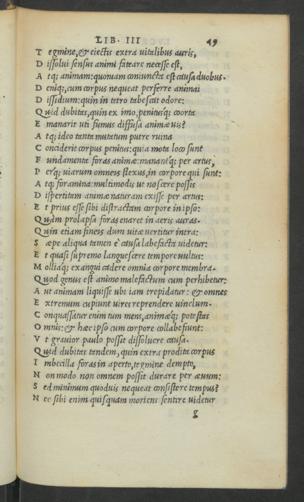 LIB. III 49
T egmine, & eiectis extra uitalibus auris,
D issolui sensus animi fateare necesse est,
A tq; animam: quoniam coniuncta est causa duobus.
D eniq; cum corpus nequeat perferre animai
D issidium: quin in tetro tabescat odore:
Q uid dubitas, quin ex imo, penitusq; coorta
E manarit uti fumus diffusa animae uis?
A tq; ideo tanta mutatum putre ruina
C onciderit corpus penitus: quia mota loco sunt
F undamenta foras animae: manantq; per artus,
P erq; uiarum omneis flexus, in corpore qui sunt:
A tq; foramina: multimodis ut noscere possis
D ispertitam animae naturam exisse per artus:
E t prius esse sibi distractam corpore in ipso:
Q uàm prolapsa foras enaret in aeris auras.
Q uin etiam fineis dum uitae uertitur intra:
S aepe aliqua tamen è causa labefacta uidetur:
E t quasi supremo languescere tempore uultus:
M olliaq; exangui cadere omnia corpore membra.
Q uod genus est animo malefactum cum perhibetur:
A ut animam liquisse: ubi iam trepidatur: & omnes
E xtremum cupiunt uires reprendere uinclum.
C onquassatur enim tum mens, animaeq; potestas
O mnis: & haec ipso cum corpore collabefiunt:
V t grauior paulo possit dissoluere causa.
Q uid dubitas tendem, quin extra prodita corpus
I mbecilla foras in aperto, tegmine dempto,
N on modo non omnem possit durare per aeuum:
S ed minimum quoduis nequeat consistere tempus?
N ec sibi enim quisquam moriens sentire uidetur
g